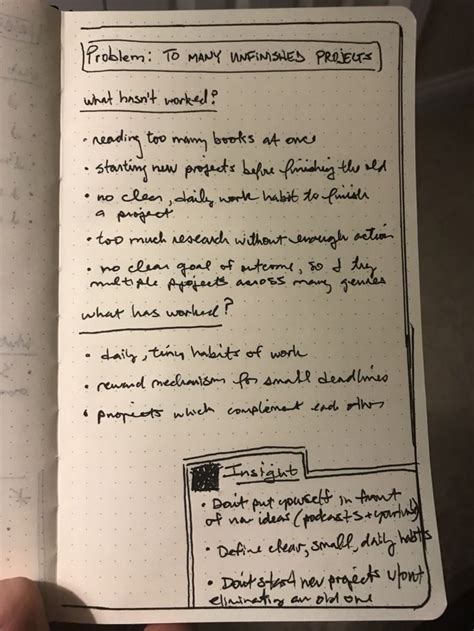 Problem: TO MANY UNFINISHED PROJECTS
what hasn't worked?
• reading too many books at once
• starting new projects before finishing the old
• no clear, daily work habit to finish
a project
• too much research without enough action
• no clear goal of outcome, so I try
multiple projects across many genres
what has worked?
• daily, tiny habits of work
• reward mechanism for small deadlines
• projects which complement each other
Insight
• Don't put yourself in front
of new ideas (podcasts + youtube)
• Define clear, small, daily habits
• Don't start new projects w/out
eliminating an old one